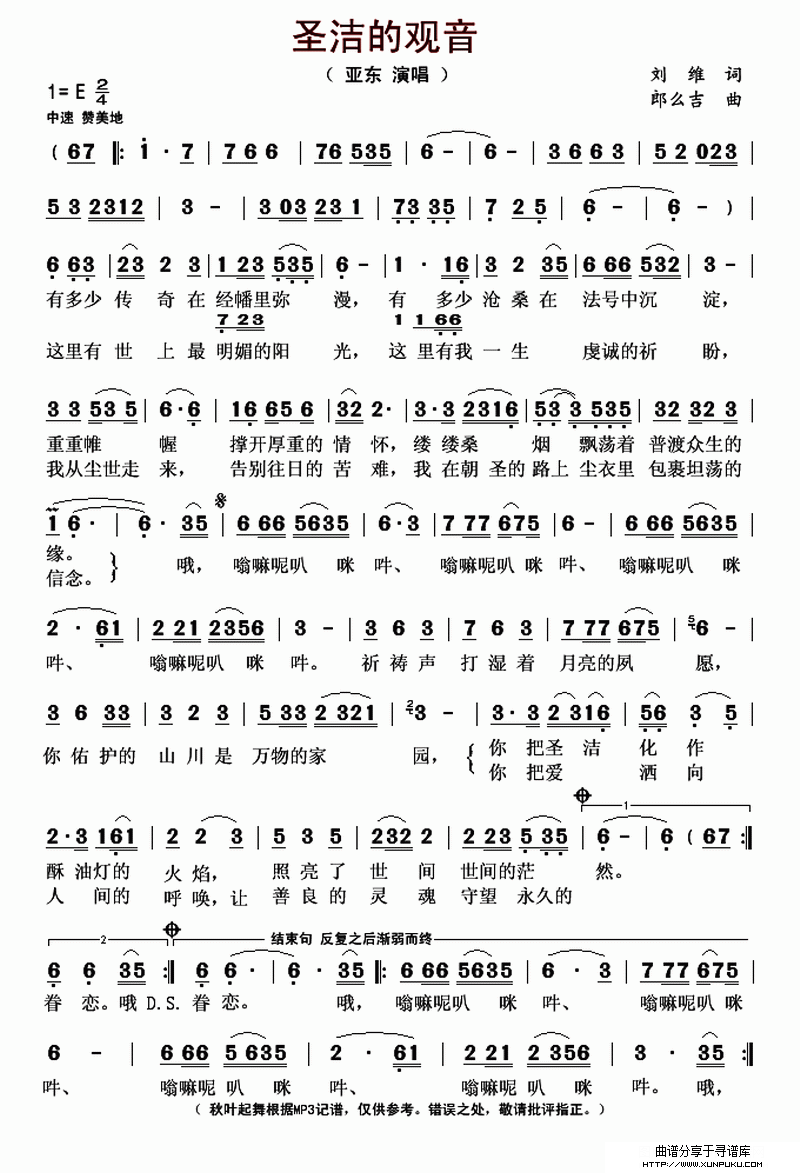 圣洁的观音
（ 亚东 演唱 ）
刘 维 词
1= E 2/4
郎么吉 曲
中速 赞美地
( 67 ‖: 1 · 7 | 7 6 6 | 76 535 | 6 - | 6 - | 3 6 6 3 | 5 2 023 |
5 3 2312 | 3 - | 3 03 23 1 | 73 35 | 7 2 5 | 6 - | 6 - ) |
6 63 | 23 2 3 | 1 23 535 | 6 - | 1 · 16 | 3 2 35 | 6 66 532 | 3 - |
有多少 传 奇 在 经幡里弥 漫， 有 多少 沧 桑 在 法号中沉 淀，
7 23 1 1 66
这里有 世 上 最 明媚的阳 光， 这 里有我 一 生 虔诚的祈 盼，
3 3 53 5 | 6 · 6 | 16 65 6 | 32 2· | 3 · 3 2316 | 53 3 535 | 32 32 3 |
重重帷 幄 撑开厚重的 情 怀， 缕 缕桑 烟 飘荡着 普渡众生的
我从尘世走 来， 告别往日的 苦 难， 我 在朝 圣的 路上 尘衣里 包裹坦荡的
1 6 · | 6 · 35 | 6 66 5635 | 6 · 3 | 7 77 675 | 6 - | 6 66 5635 |
缘。
哦， 嗡嘛呢叭 咪 吽、 嗡嘛呢叭 咪 吽、 嗡嘛呢叭 咪
信念。
2 · 61 | 2 21 2356 | 3 - | 3 6 3 | 7 6 3 | 7 77 675 | 5 6 - |
吽、 嗡嘛呢叭 咪 吽。 祈 祷 声 打 湿 着 月亮的夙 愿，
3 6 33 | 3 2 3 | 5 33 2 321 | 2 3 - | 3 · 3 2 316 | 56 3 5 |
你 佑 护的 山 川 是 万物的家 园， 你 把圣 洁 化 作
你 把爱 洒 向
1
2 · 3 161 | 2 2 3 | 5 3 5 | 232 2 | 2 23 5 35 | 6 - | 6 ( 67 :‖
酥 油灯的 火 焰， 照 亮 了 世 间 世间的茫 然。
人 间的 呼 唤， 让 善 良 的 灵 魂 守望 永久的
2 结束句 反复之后渐弱而终
6 6 35 :‖ 6 6 · | 6 · 35 ‖: 6 66 5635 | 6 · 3 | 7 77 675 |
眷 恋。 哦 D.S. 眷 恋。 哦， 嗡嘛呢叭 咪 吽、 嗡嘛呢叭 咪
6 - | 6 66 5 635 | 2 · 61 | 2 21 2 356 | 3 · 35 :‖
吽、 嗡嘛呢 叭 咪 吽、 嗡嘛呢叭 咪 吽。 哦，
（ 秋叶起舞根据MP3记谱，仅供参考。错误之处，敬请批评指正。）
曲谱分享于寻谱库
HTTP://WWW.XUNPUKU.COM